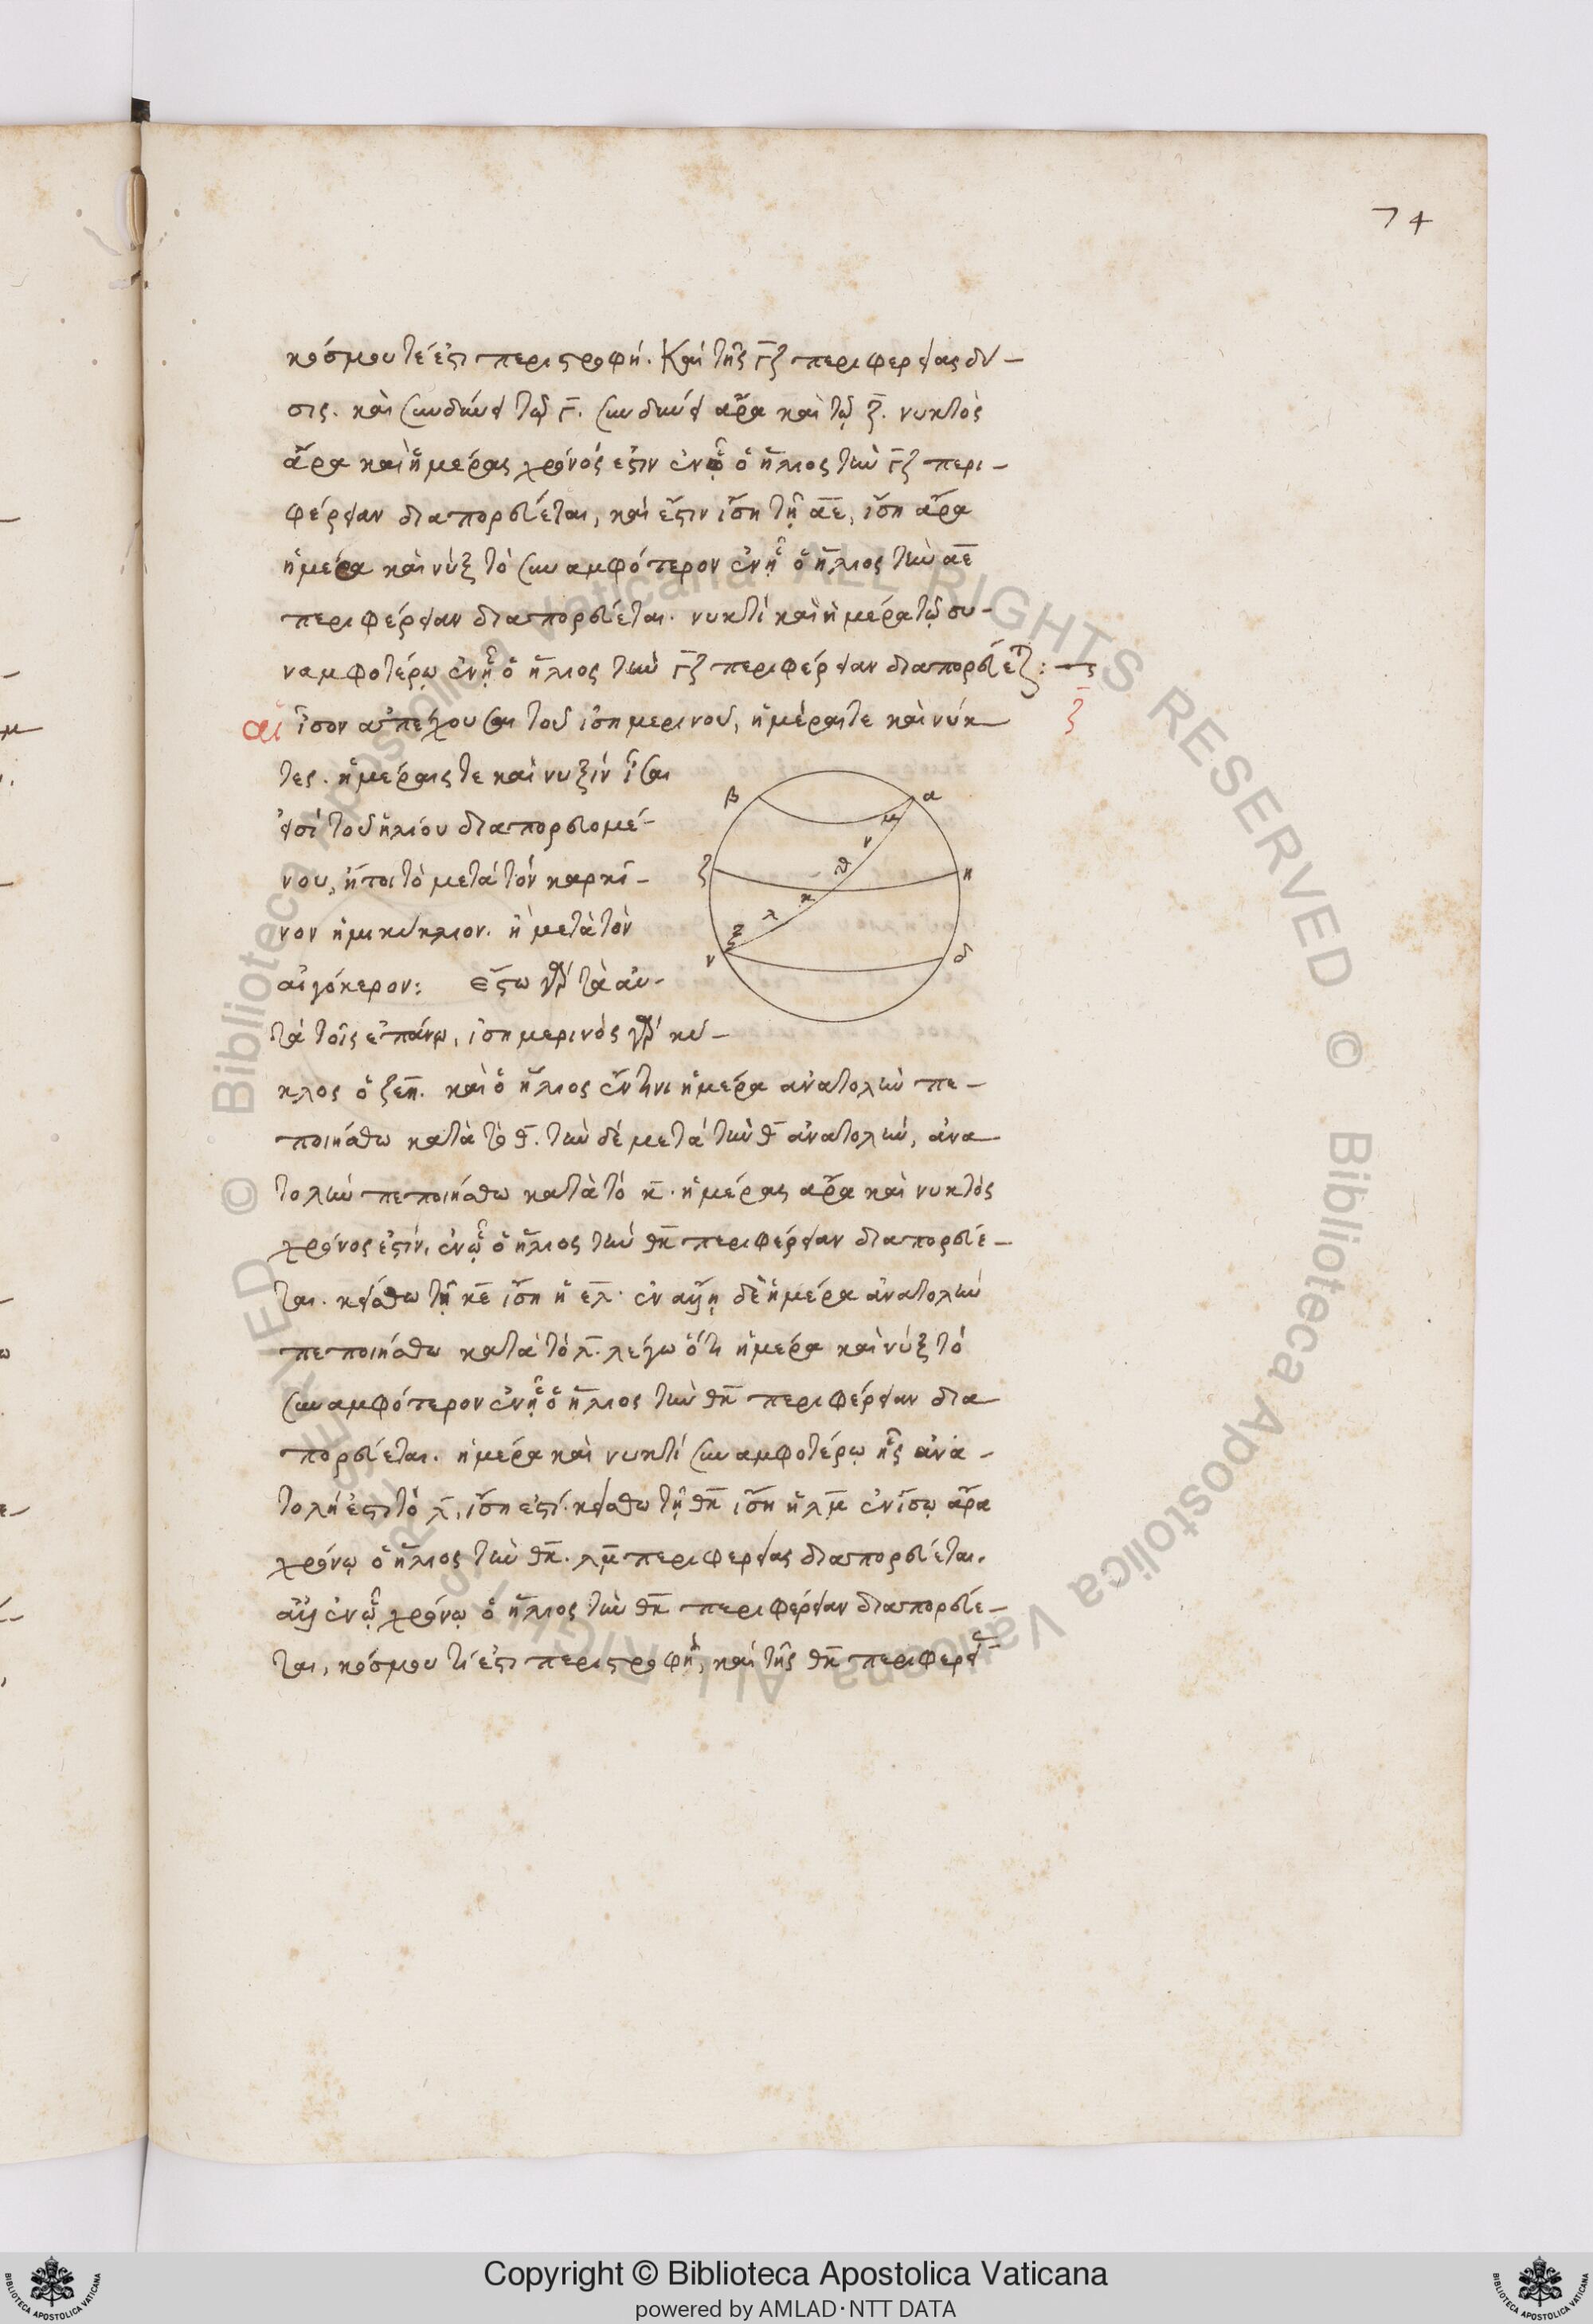 74
κόσμου τέ ἐστι περιστροφή. Καὶ τῆς γζ περιφερείας δύ-
σις. καὶ συνδύνει τῷ γ. συνδύνει ἄρα καὶ τῷ ζ. νυκτὸς
ἄρα καὶ ἡμέρας χρόνός ἐστιν ἐν ᾧ ὁ ἥλιος τὴν γζ περι-
φέρειαν διαπορεύεται, καὶ ἔστιν ἴση τῇ αε, ἴση ἄρα
ἡμέρα καὶ νὺξ τὸ συναμφότερον ἐν ᾗ ὁ ἥλιος τὴν αε
περιφέρειαν διαπορεύεται. νυκτὶ καὶ ἡμέρα τῷ συ-
ναμφοτέρῳ ἐν ᾗ ὁ ἥλιος τὴν γζ περιφέρειαν διαπορεύεται:
αἱ ἴσον ἀπέχουσαι τοῦ ἰσημερινοῦ, ἡμέραι τε καὶ νύκ
ζ
τες. ἡμέραις τε καὶ νυξὶν ἴσαι
εἰσὶ τοῦ ἡλίου διαπορευομέ-
νου, ἤτοι τὸ μετὰ τὸν καρκῖ-
νον ἡμικύκλιον. ἢ μετὰ τὸν
αἰγόκερον: ἔστω γὰρ τὰ αὐ-
τὰ τοῖς ἐπάνω, ἰσημερινὸς γὰρ κύ-
β α μ ν θ ζ η κ λ ξ γ δ
κλος ὁ ζεη. καὶ ὁ ἥλιος ἔν τινι ἡμέρα ἀνατολὴν πε-
ποιήσθω κατὰ τὸ θ. τὴν δὲ μετὰ τὴν θ ἀνατολὴν, ἀνα
τολὴν πεποιήσθω κατὰ τὸ κ. ἡμέρας ἄρα καὶ νυκτὸς
χρόνος ἐστίν, ἐν ᾧ ὁ ἥλιος τὴν θκ περιφέρειαν διαπορεύε-
ται. κείσθω τῇ κε ἴση ἡ ελ. ἐν αὐτῇ δὲ ἡμέρα ἀνατολὴν
πεποιήσθω κατὰ τὸ λ. λέγω ὅτι ἡμέρα καὶ νὺξ τὸ
συναμφότερον ἐν ᾗ ὁ ἥλιος τὴν θκ περιφέρειαν δια
πορεύεται. ἡμέρα καὶ νυκτὶ συναμφοτέρῳ ἧς ἀνα-
τολή ἐστι τὸ λ, ἴση ἐστί. κείσθω τῇ θκ ἴση ἡ λμ ἐν ἴσῳ ἄρα
χρόνῳ ὁ ἥλιος τὴν θκ. λμ περιφερείας διαπορεύεται.
ἀλλ' ἐν ᾧ χρόνῳ ὁ ἥλιος τὴν θκ περιφέρειαν διαπορεύε-
ται, κόσμου τέ ἐστι περιστροφὴ, καὶ τῆς θκ περιφερείας
© Biblioteca Apostolica Vaticana ALL RIGHTS RESERVED
© Biblioteca Apostolica Vaticana ALL RIGHTS RESERVED
Copyright © Biblioteca Apostolica Vaticana
powered by AMLAD·NTT DATA